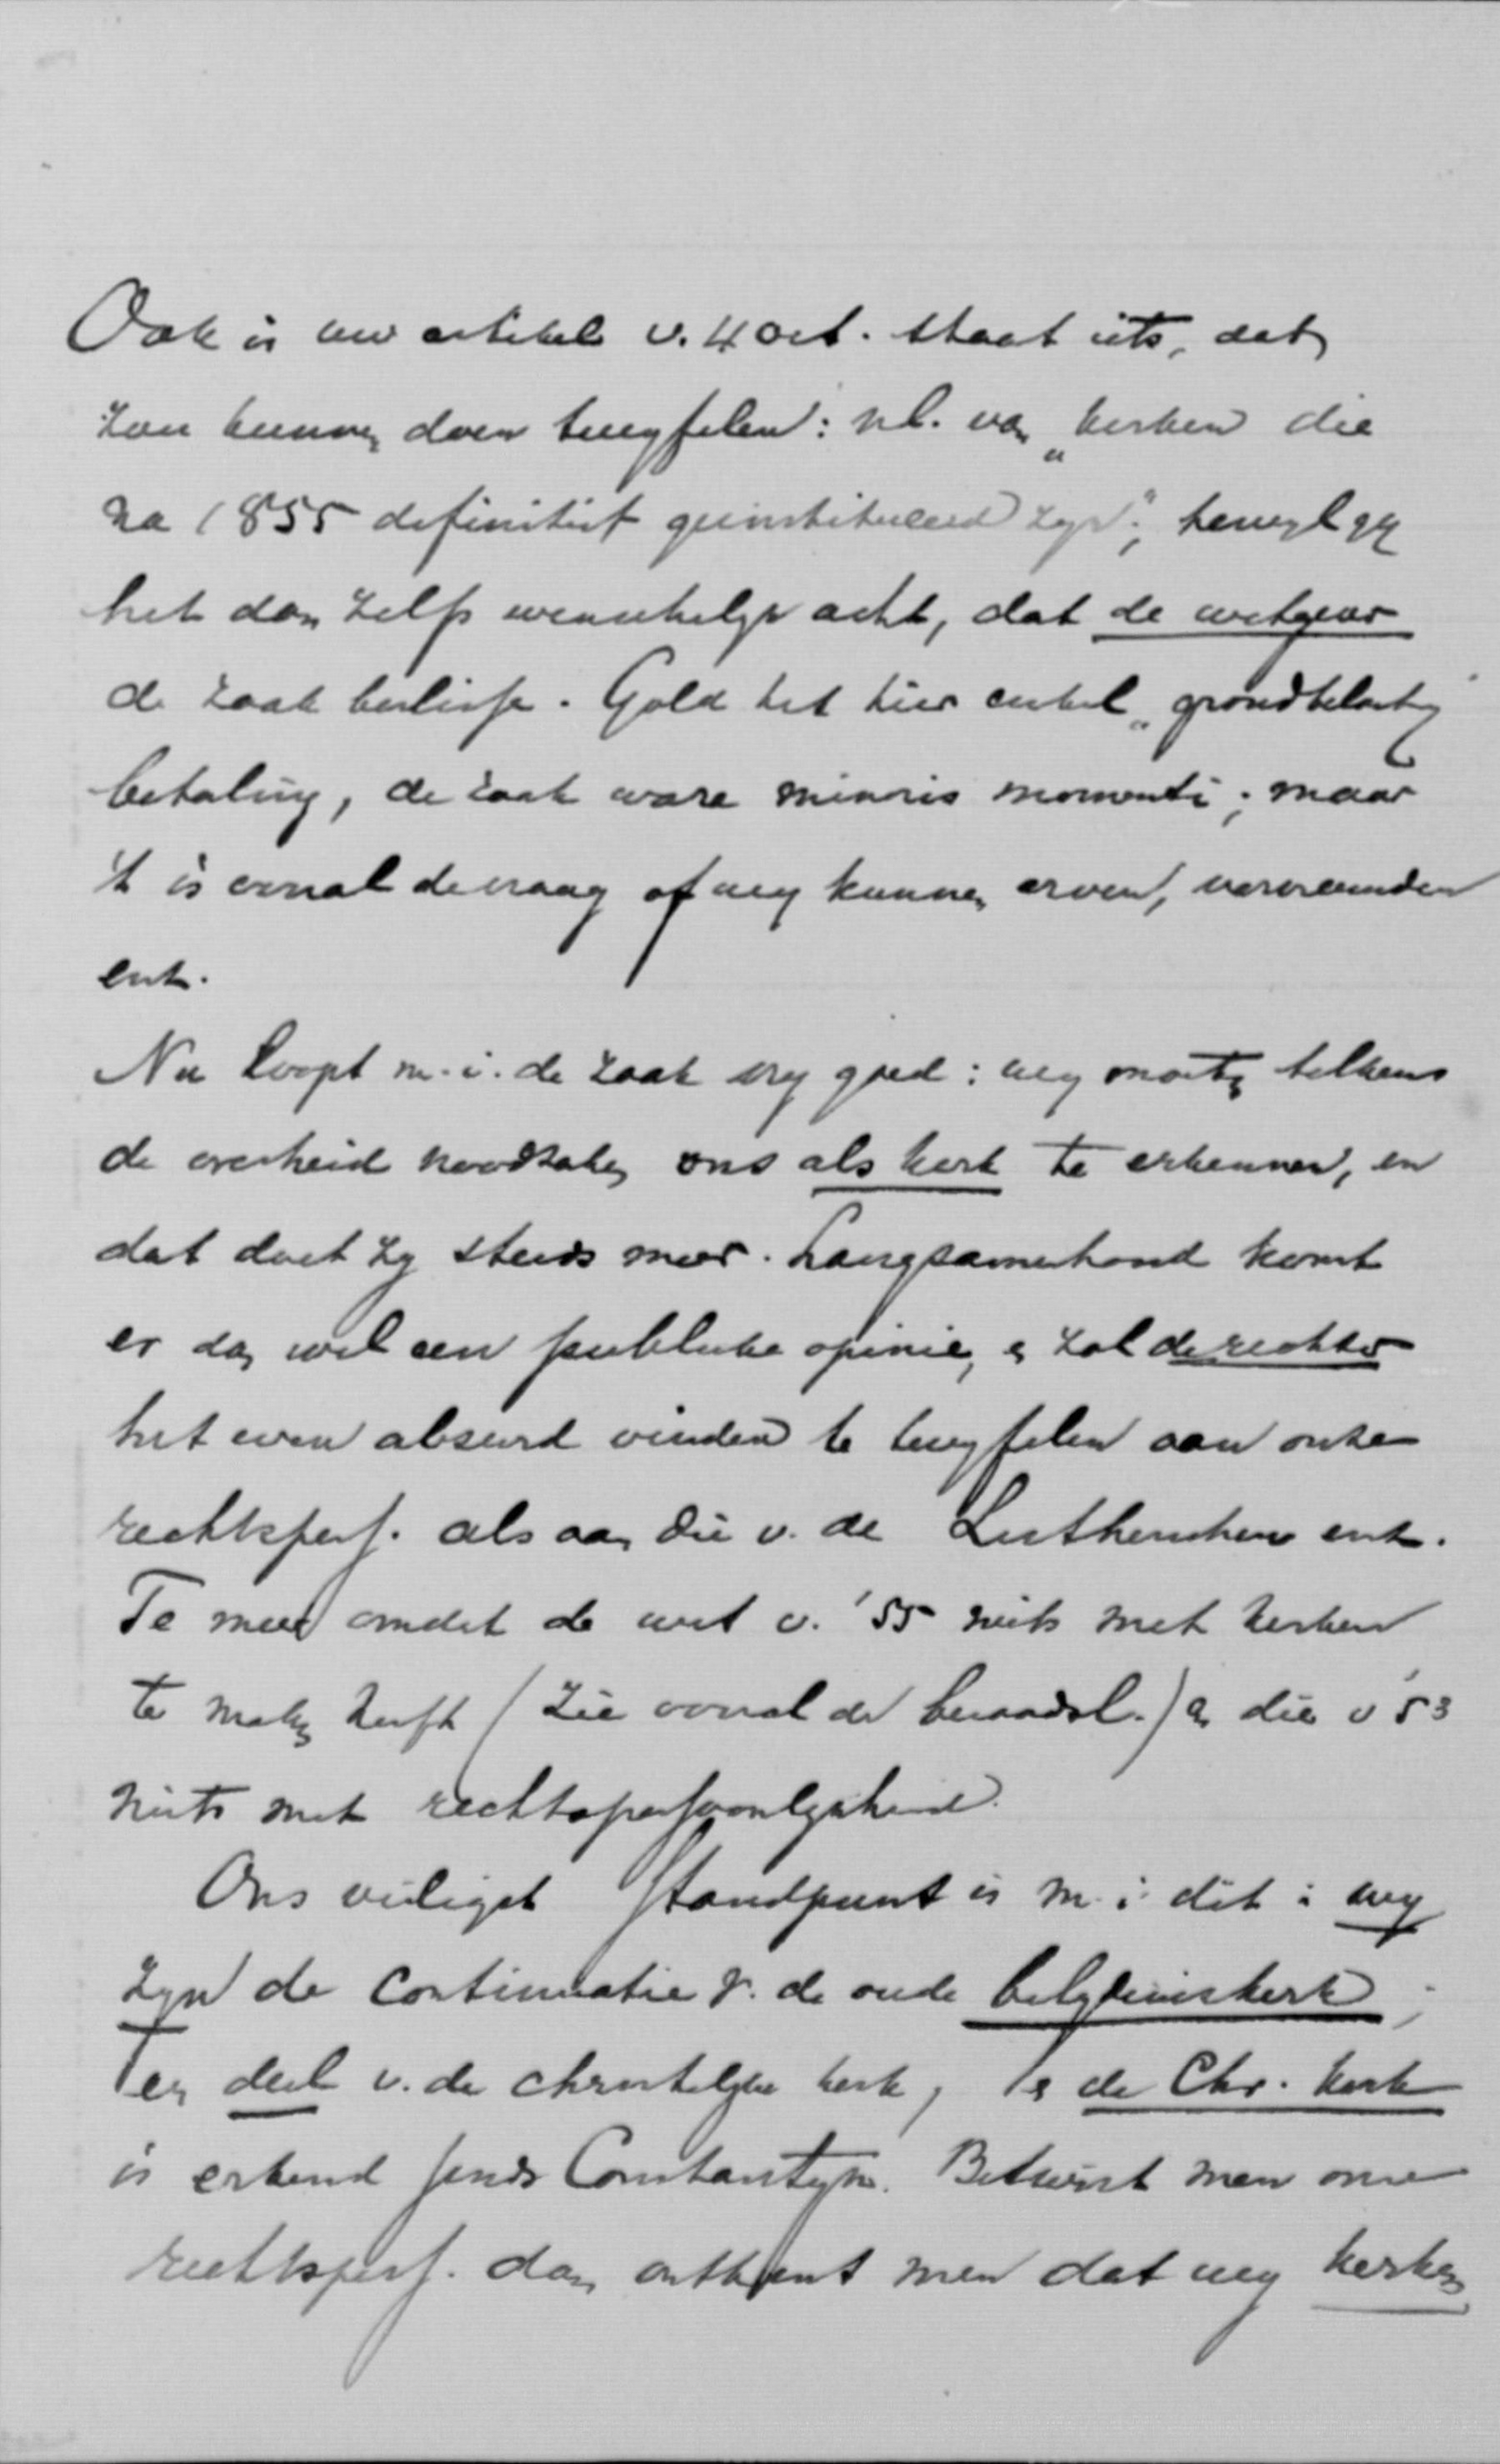 Ook in uw artikel v. 4 Oct. staat iets, dat
zou kunnen doen twijfelen: nl. van „kerken die
na 1855 definitief geinstitueerd zijn”; terwijl gij
het dan zelfs wenschelijk acht, dat de wetgever
de zaak beslisse. Gold het hier enkel „grondbelasting”
betaling, de zaak ware minoris momenti; maar
't is vooral de vraag of wij kunnen erven, vervreemden
enz.
Nu loopt m.i. de zaak vrij goed: wij moeten telkens
de overheid noodzaken ons als kerk te erkennen, en
dat doet zij steeds meer. Langzamerhand komt
er dan wel een publieke opinie, en zal de rechter
het even absurd vinden te twijfelen aan onze
rechtspers. als aan die v. de Lutherschen enz.
Te meer omdat de wet v. '55 niets met kerken
te maken heeft (zie vooral de beraadsl.) en die v '53
niets met rechtspersoonlijkheid.
Ons veiligst standpunt is m.i. dit: wij
zijn de continuatie v. de oude belijdeniskerk;
en deel v. de christelijke kerk, en de Chr. kerk
is erkend sinds Constantijn. Betwist men onze
rechtspers. dan ontkent men dat wij kerken